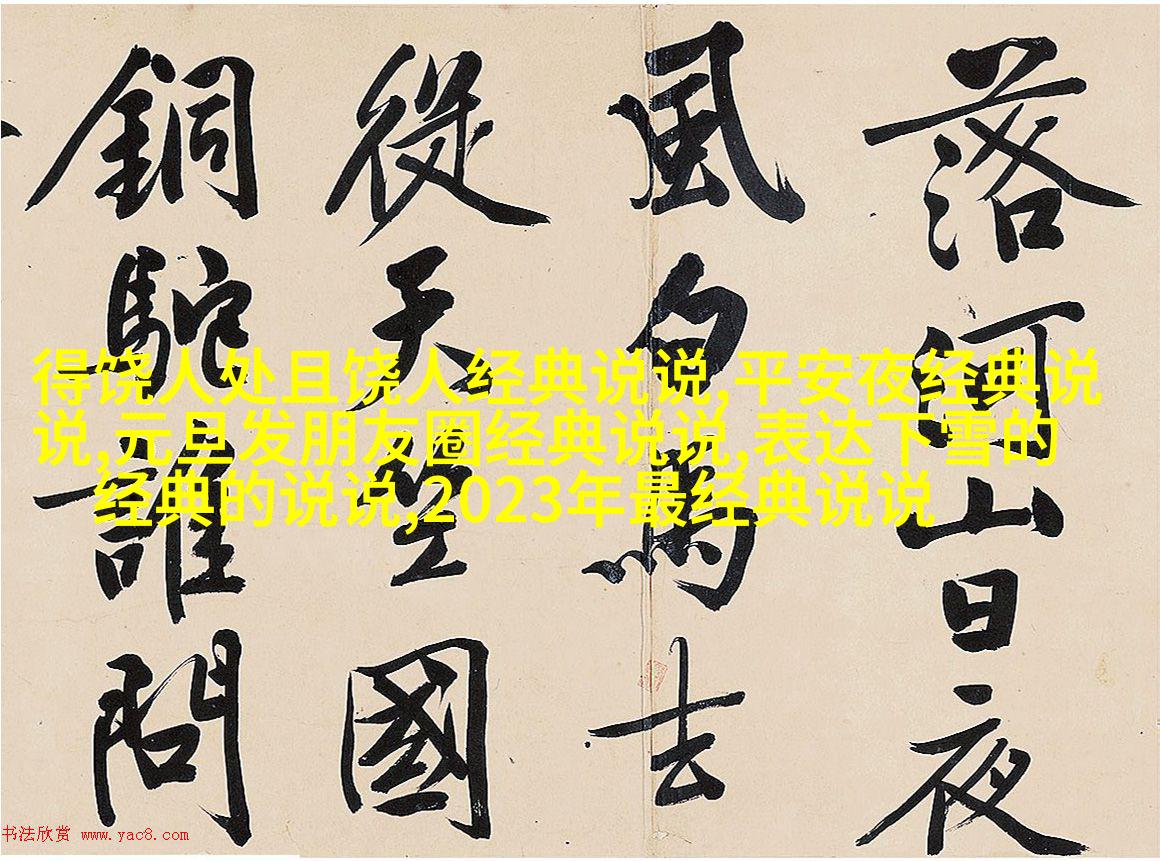 落河山日夜
風白馬去
從天竺國
銅駝誰問
得饶人处且饶人经典说说,平安夜经典说
说,元旦发朋友圈经典说说,表达下雪的
经典的说说,2023年最经典说说
书法欣赏 www.yac8.com